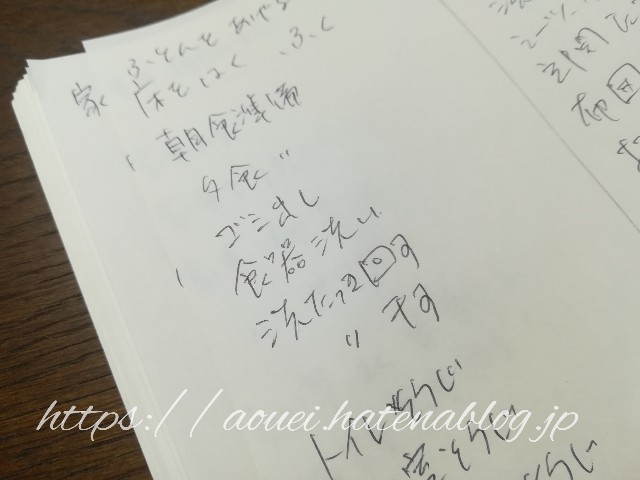 家 ふとんをあげる
床をはく、ふく
朝食準備
夕食 〃
ゴミ出し
食器洗い
洗たく回す
〃 干す
トイレそうじ
そうじ
そうじ
シーツ
玄関
布団
https://aouei.hatenablog.jp